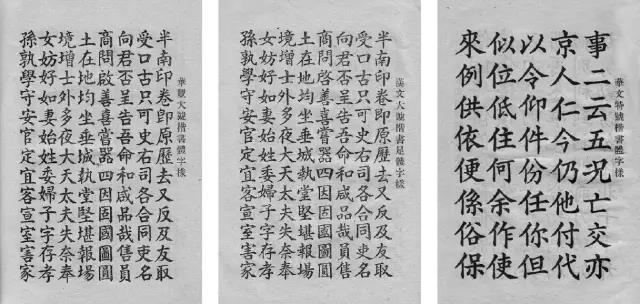 華豐大號楷書體字樣
半南印卷即原歷去又反及友取
受口古只可史右司各合同吏名
向君否呈告吾命和咸品哉售員
商問啟善喜嘗器四因固國圖圓
土在地均坐垂城執堂堅堪報場
境增士外多夜大天太夫失奈奉
女妨好如妻始姓委婦子字存孝
孫孰學守安官定宜客宣室害家
漢文大號楷書足體字樣
半南印卷即原歷去又反及友取
受口古只可史右司各合同吏名
向君否呈告吾命和咸品哉售員
商問啓善喜嘗器四因固國圖圓
土在地均坐垂城執堂堅堪報場
境增士外多夜大天太夫失奈奉
女妨好如妻始姓委婦子字存孝
孫孰學守安官定宜客宣室害家
華文特號楷書體字樣
事二云五況亡交亦
京人仁今仍他付代
以令仰件份任你但
似位低住何余作使
來例供依便係俗保